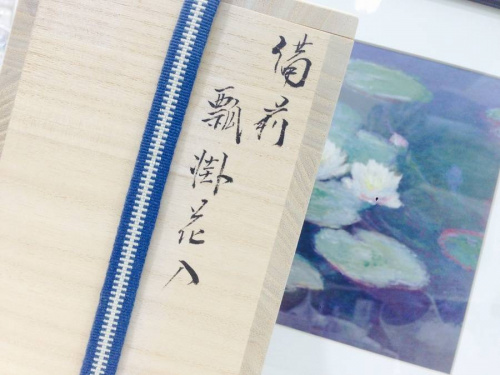 備前
瓢掛花入